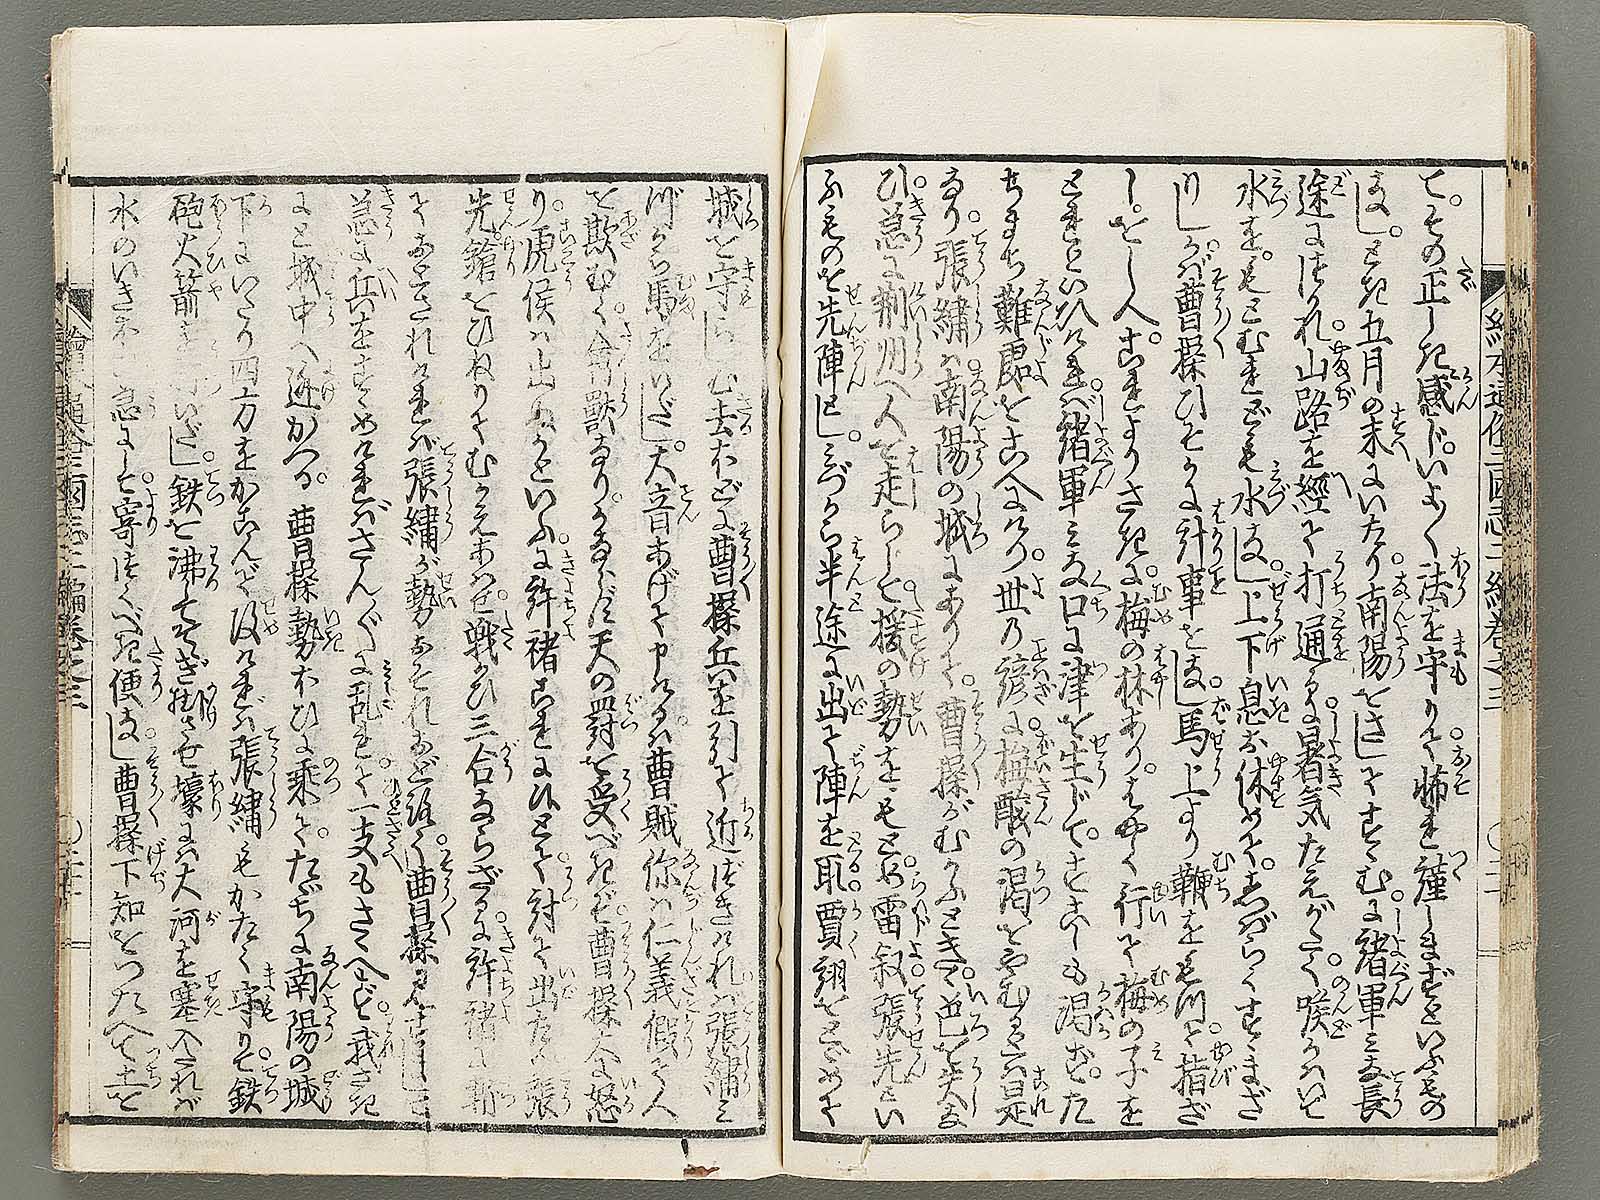 て。その正しきに感じ。いよ〳〵法を守りて怖れ謹しまずといふもの
なし。とき五月の末にいたり。南陽をさしてすゝむに諸軍みな長
途につかれ。山路を經て打通るに暑気たえがたく。喉かはいて
水を。もとむれども水なし。上下息を休めて。しばらくすゝまざ
りしかば曹操ひそかに計事をなし。馬上より鞭をもつて。指ざ
し。をしへ。これよりさきに梅の林あり。はやく行て梅の子を
とれといひければ。諸軍みな口に津を生じて。すこしも渇せず。た
ちまち難處をこへにけり。世の諺に梅酸の渇をやむるとは是
なり。張繍は南陽の城にありて。曹操がむかふときゝ。色を失な
ひ。急に荊州へ人を走らして。援の勢をもとめ。雷叙張先とい
ふものを先陣とし。みづから半途に出て陣を取。賈詡をとゞめて
城を守らしむ。去ほどに曹操兵を引て近づきければ。張繍み
づから馬をいだし。大音あげて申けるは。曹賊你は仁義假て人
を欺むく。禽獣なり。かならず天の罰を受べきぞ。曹操大に怒
り。虎侯は出ぬかといふに。許褚これにひとて。討て出たり。張
先鎗をひねりてむかえあはせ。戦かひ三合ならざるに許褚に斬
ておとされければ。張繍が勢おそれおどろく。曹操
急に兵をすゝめければ。さん〴〵に乱れて一支もさゝへず。我さき
にと城中へ逃かへる。曹操勢ひに乗て。たゞちに南陽の城
下にいたり四方をかこんで攻ければ。張繍もかたく守りて。鉄
砲火箭を いだし。鉄を沸してそゝぎ掛させ。壕には大河を塞入たれば
水のいきほひ急にして。寄つくべき便なし。曹操下知をつたへて土を
繪本通俗三國志二編巻之三
繪本通俗三國志二編巻之三